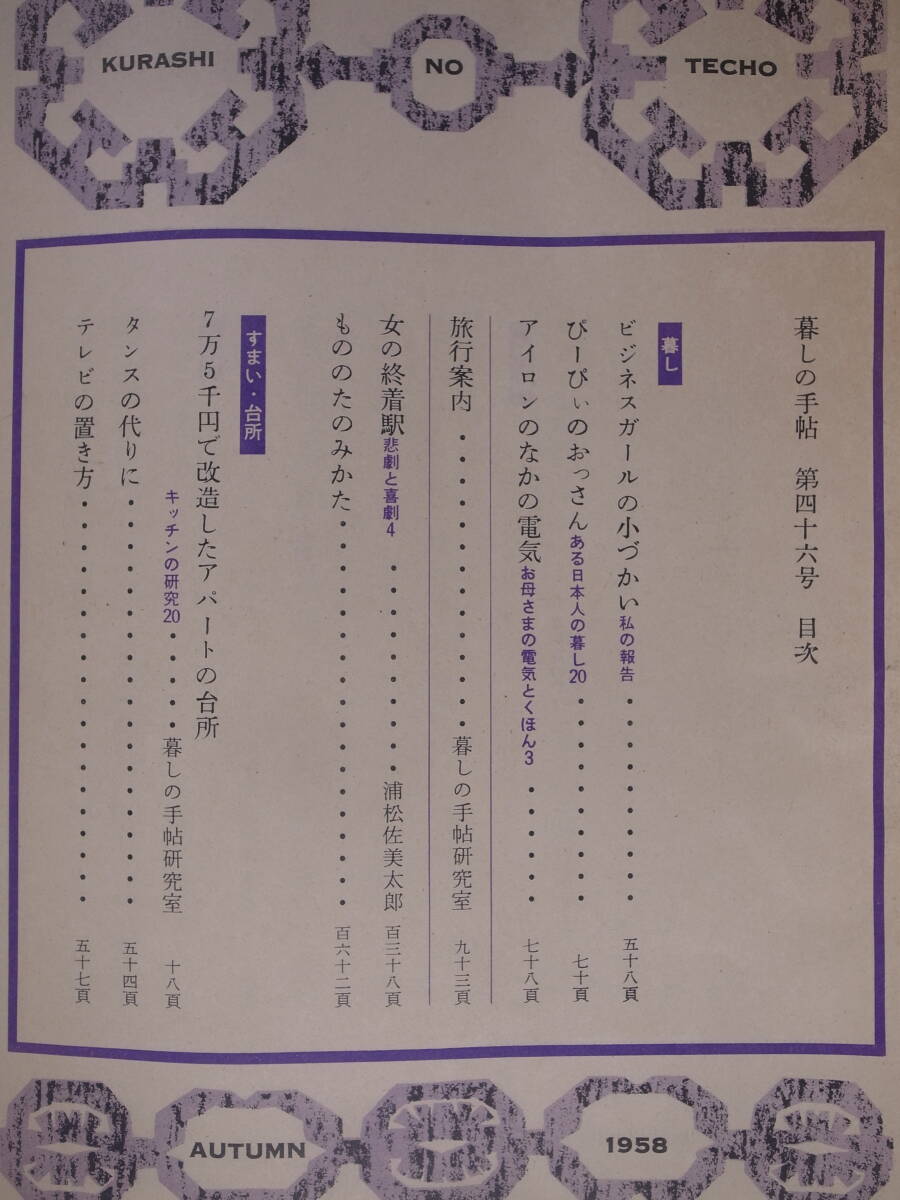 KURASHI NO TECHO
暮しの手帖 第四十六号 目次
暮し
ビジネスガールの小づかい 私の報告・・・・・・・・・・五十八頁
ぴーぴぃのおっさん ある日本人の暮し20・・・・・・・・・・七十頁
アイロンのなかの電気 お母さまの電気とくほん3・・・・・・七十八頁
旅行案内・・・・・・・・・・・・・・暮しの手帖研究室 九十三頁
女の終着駅 悲劇と喜劇4・・・・・・・・・・浦松佐美太郎 百三十八頁
もののたのみかた・・・・・・・・・・・・・・・・・・百六十二頁
すまい・台所
7万5千円で改造したアパートの台所
キッチンの研究20・・・・・暮しの手帖研究室 十八頁
タンスの代りに・・・・・・・・・・・・・・・・・・・五十四頁
テレビの置き方・・・・・・・・・・・・・・・・・・・五十七頁
AUTUMN 1958